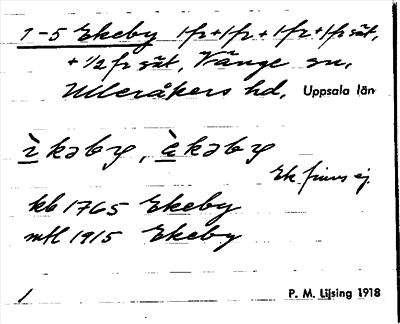 1-5 Ekeby 1fr+1fr+1fr+1fr sät,
+ 1/2 fr sät, Vänge sn,
Ulleråkers hd, Uppsala län
ìkəby, èkəby
Ek finns ej.
kb 1765 Ekeby
mtl 1915 Ekeby
1 P. M. Lijsing 1918